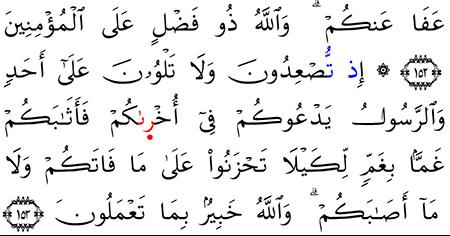 عَفَا عَنكُمْ ۗ وَٱللَّهُ ذُو فَضْلٍ عَلَى ٱلْمُؤْمِنِينَ
﴿١٥٢﴾ ۞ إِذ تُّصْعِدُونَ وَلَا تَلْوُۥنَ عَلَىٰٓ أَحَدٍ
وَٱلرَّسُولُ يَدْعُوكُمْ فِىٓ أُخْرِىٰكُمْ فَأَثَٰبَكُمْ
غَمًّۢا بِغَمٍّ لِّكَيْلَا تَحْزَنُوا۟ عَلَىٰ مَا فَاتَكُمْ وَلَا
مَآ أَصَٰبَكُمْ ۗ وَٱللَّهُ خَبِيرٌۢ بِمَا تَعْمَلُونَ ﴿١٥٣﴾